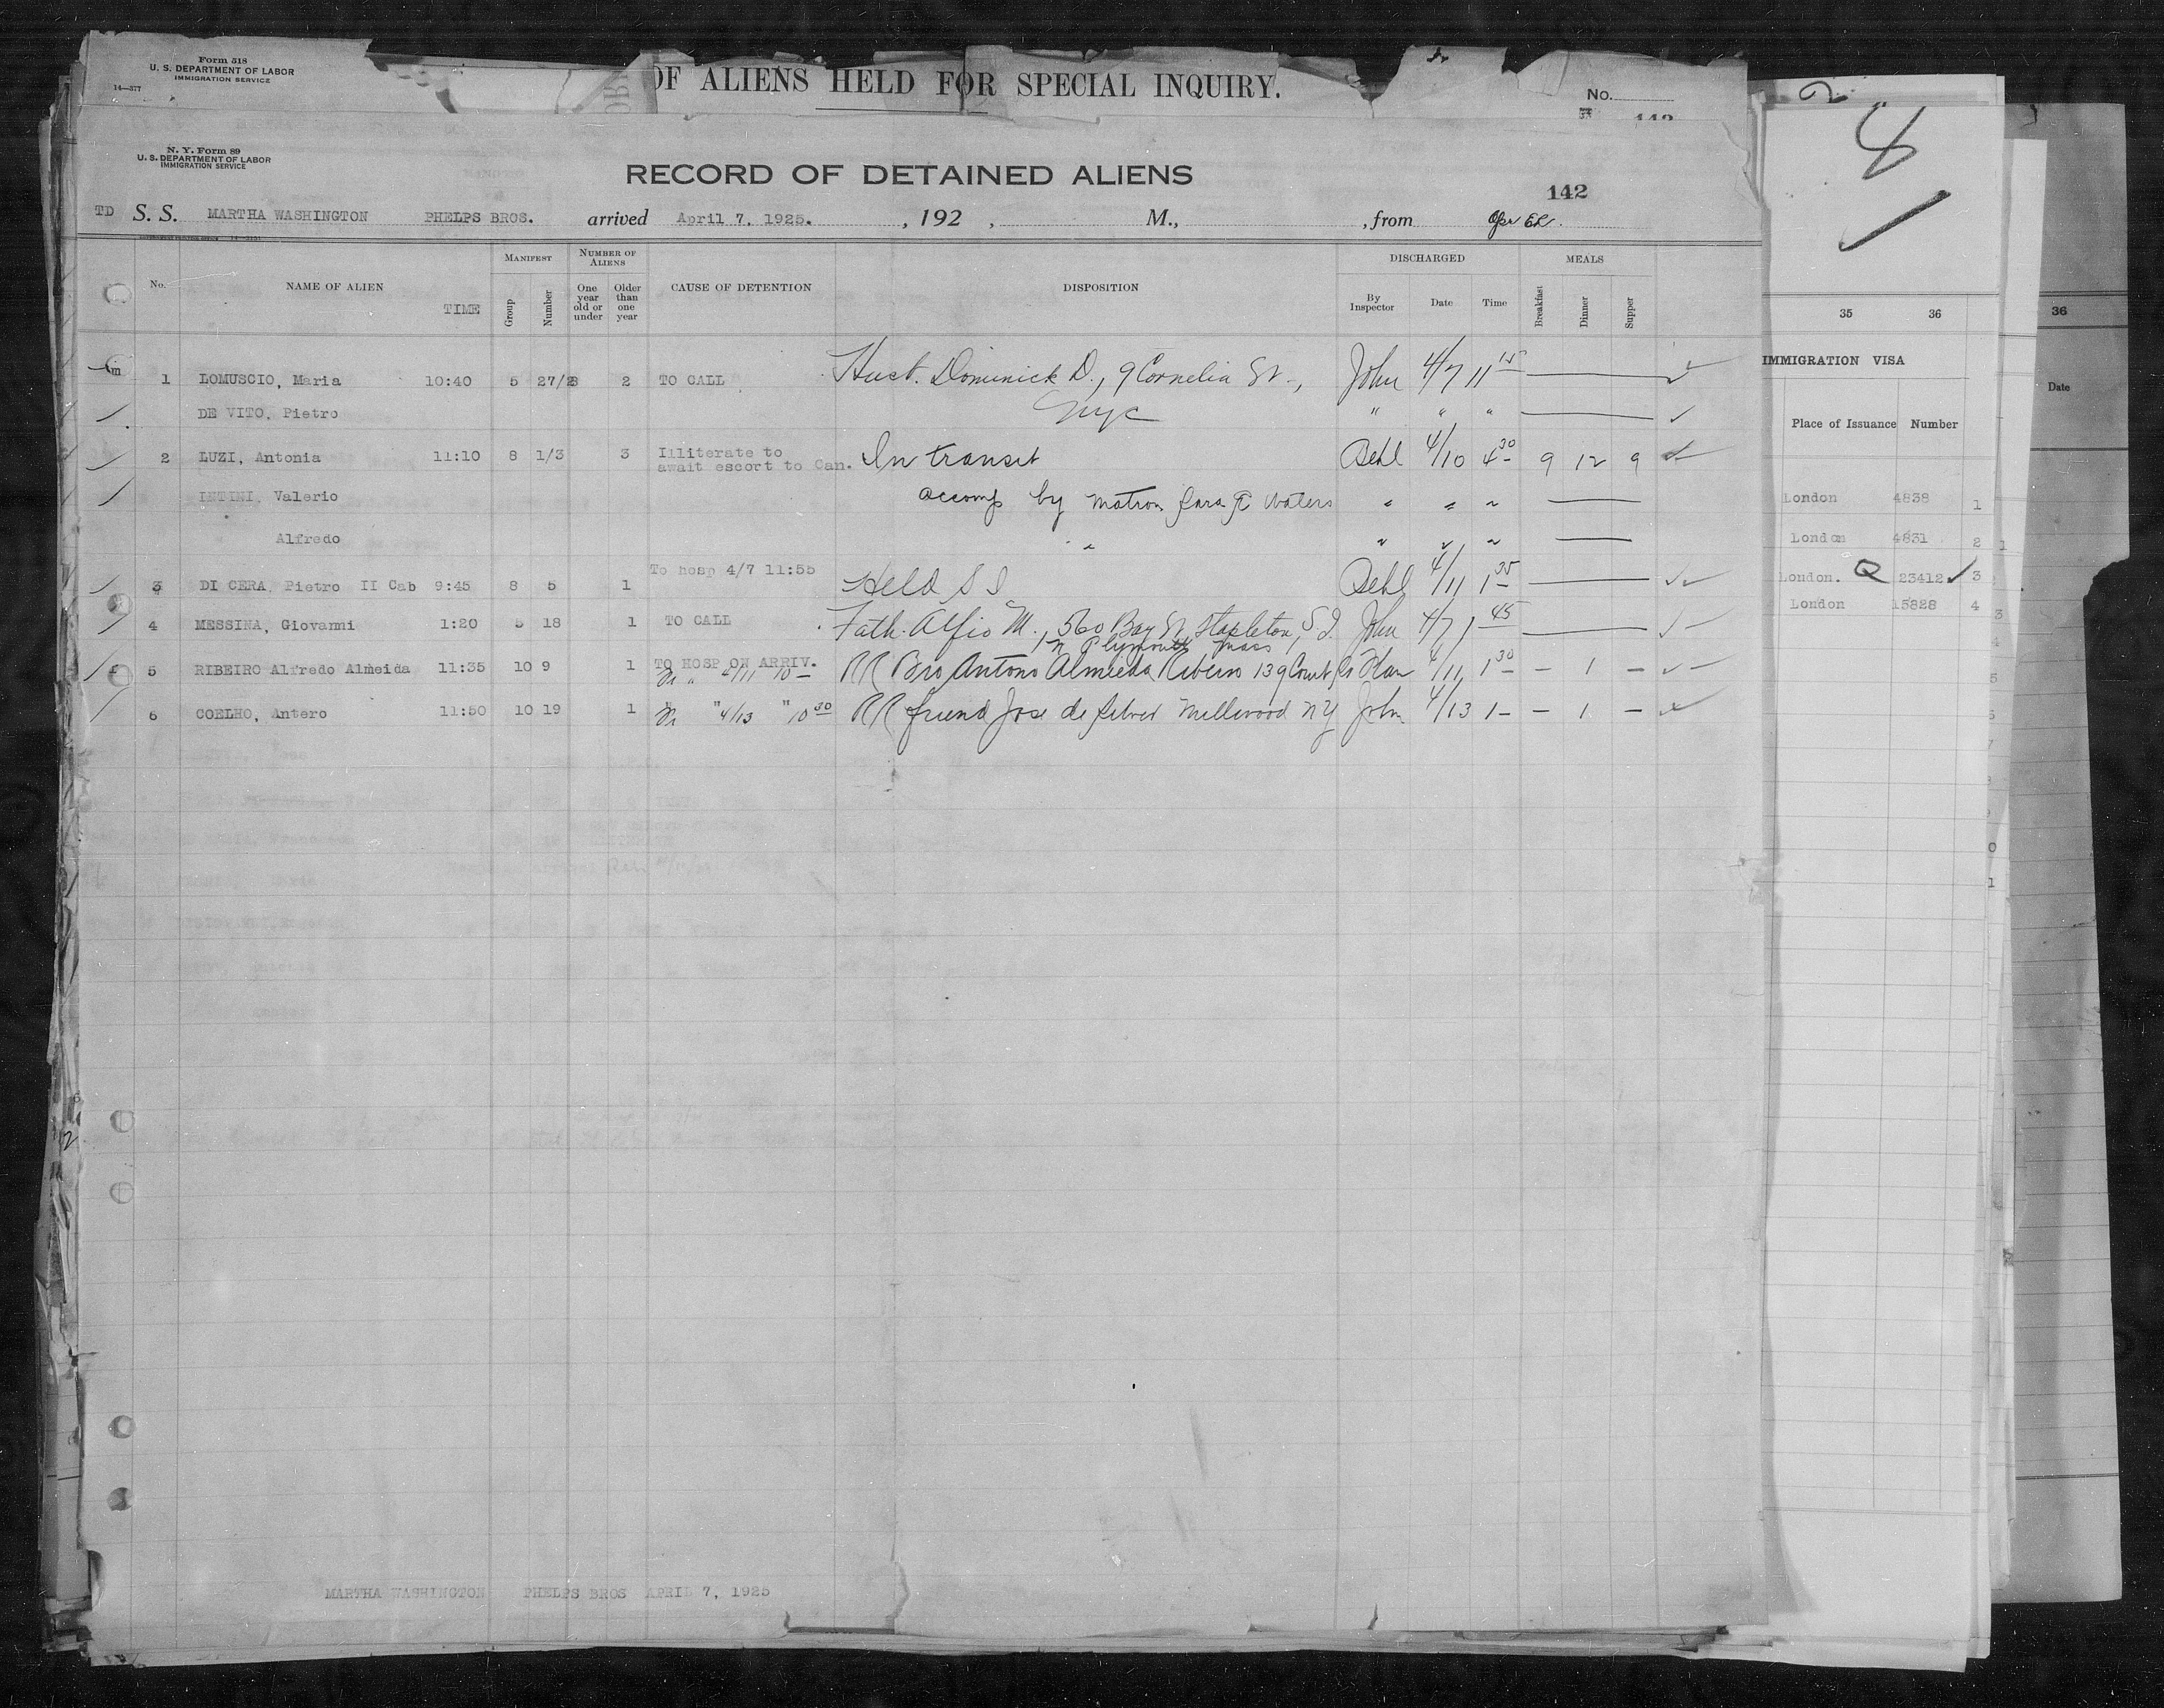 Form 518
U. S. DEPARTMENT OF LABOR
IMMIGRATION SERVICE
14—377
OF ALIENS HELD FOR SPECIAL INQUIRY.
No.
N. Y. Form 89
U. S. DEPARTMENT OF LABOR
IMMIGRATION SERVICE
RECORD OF DETAINED ALIENS
142
TD S. S. MARTHA WASHINGTON PHELPS BROS. arrived April 7, 1925. , 192 , M., , from
No. NAME OF ALIEN TIME MANIFEST Group Number NUMBER OF ALIENS One year old or under Older than one year CAUSE OF DETENTION DISPOSITION DISCHARGED By Inspector Date Time MEALS Breakfast Dinner Supper
1 LOMUSCIO, Maria 10:40 5 27/28 2 TO CALL Husb. Dominick D., 9 Cornelia St., John 4/7 11 15
DE VITO, Pietro NYC " " "
2 LUZI, Antonia 11:10 8 1/3 3 Illiterate to await escort to Can. In transit Behl 4/10 4 30 9 12 9
INTINI, Valerio accomp by matron Waters " " "
Alfredo " " " "
3 DI CERA, Pietro II Cab 9:45 8 5 1 To hosp 4/7 11:55 Held S I Behl 4/11 1 35
4 MESSINA, Giovanni 1:20 5 18 1 TO CALL Fath. Alfio M., 560 Bay St, Stapleton, S. I. John 4/7 1 45
N Plymouth Mass
5 RIBEIRO Alfredo Almeida 11:35 10 9 1 TO HOSP ON ARRIV. " 4/11 10 — RR Bro Antono Almieda Ribeiro 139 Court St 4/11 1 30 — 1 —
6 COELHO, Antero 11:50 10 19 1 " " 4/13 " 10 30 RR friend Jose de Silver Millwood NY John 4/13 1 — — 1 —
MARTHA WASHINGTON PHELPS BROS APRIL 7, 1925
8
35 36
IMMIGRATION VISA
Place of Issuance Number
London 4838 1
London 4831 2
London. Q 23412 3
London 15828 4
36
Date